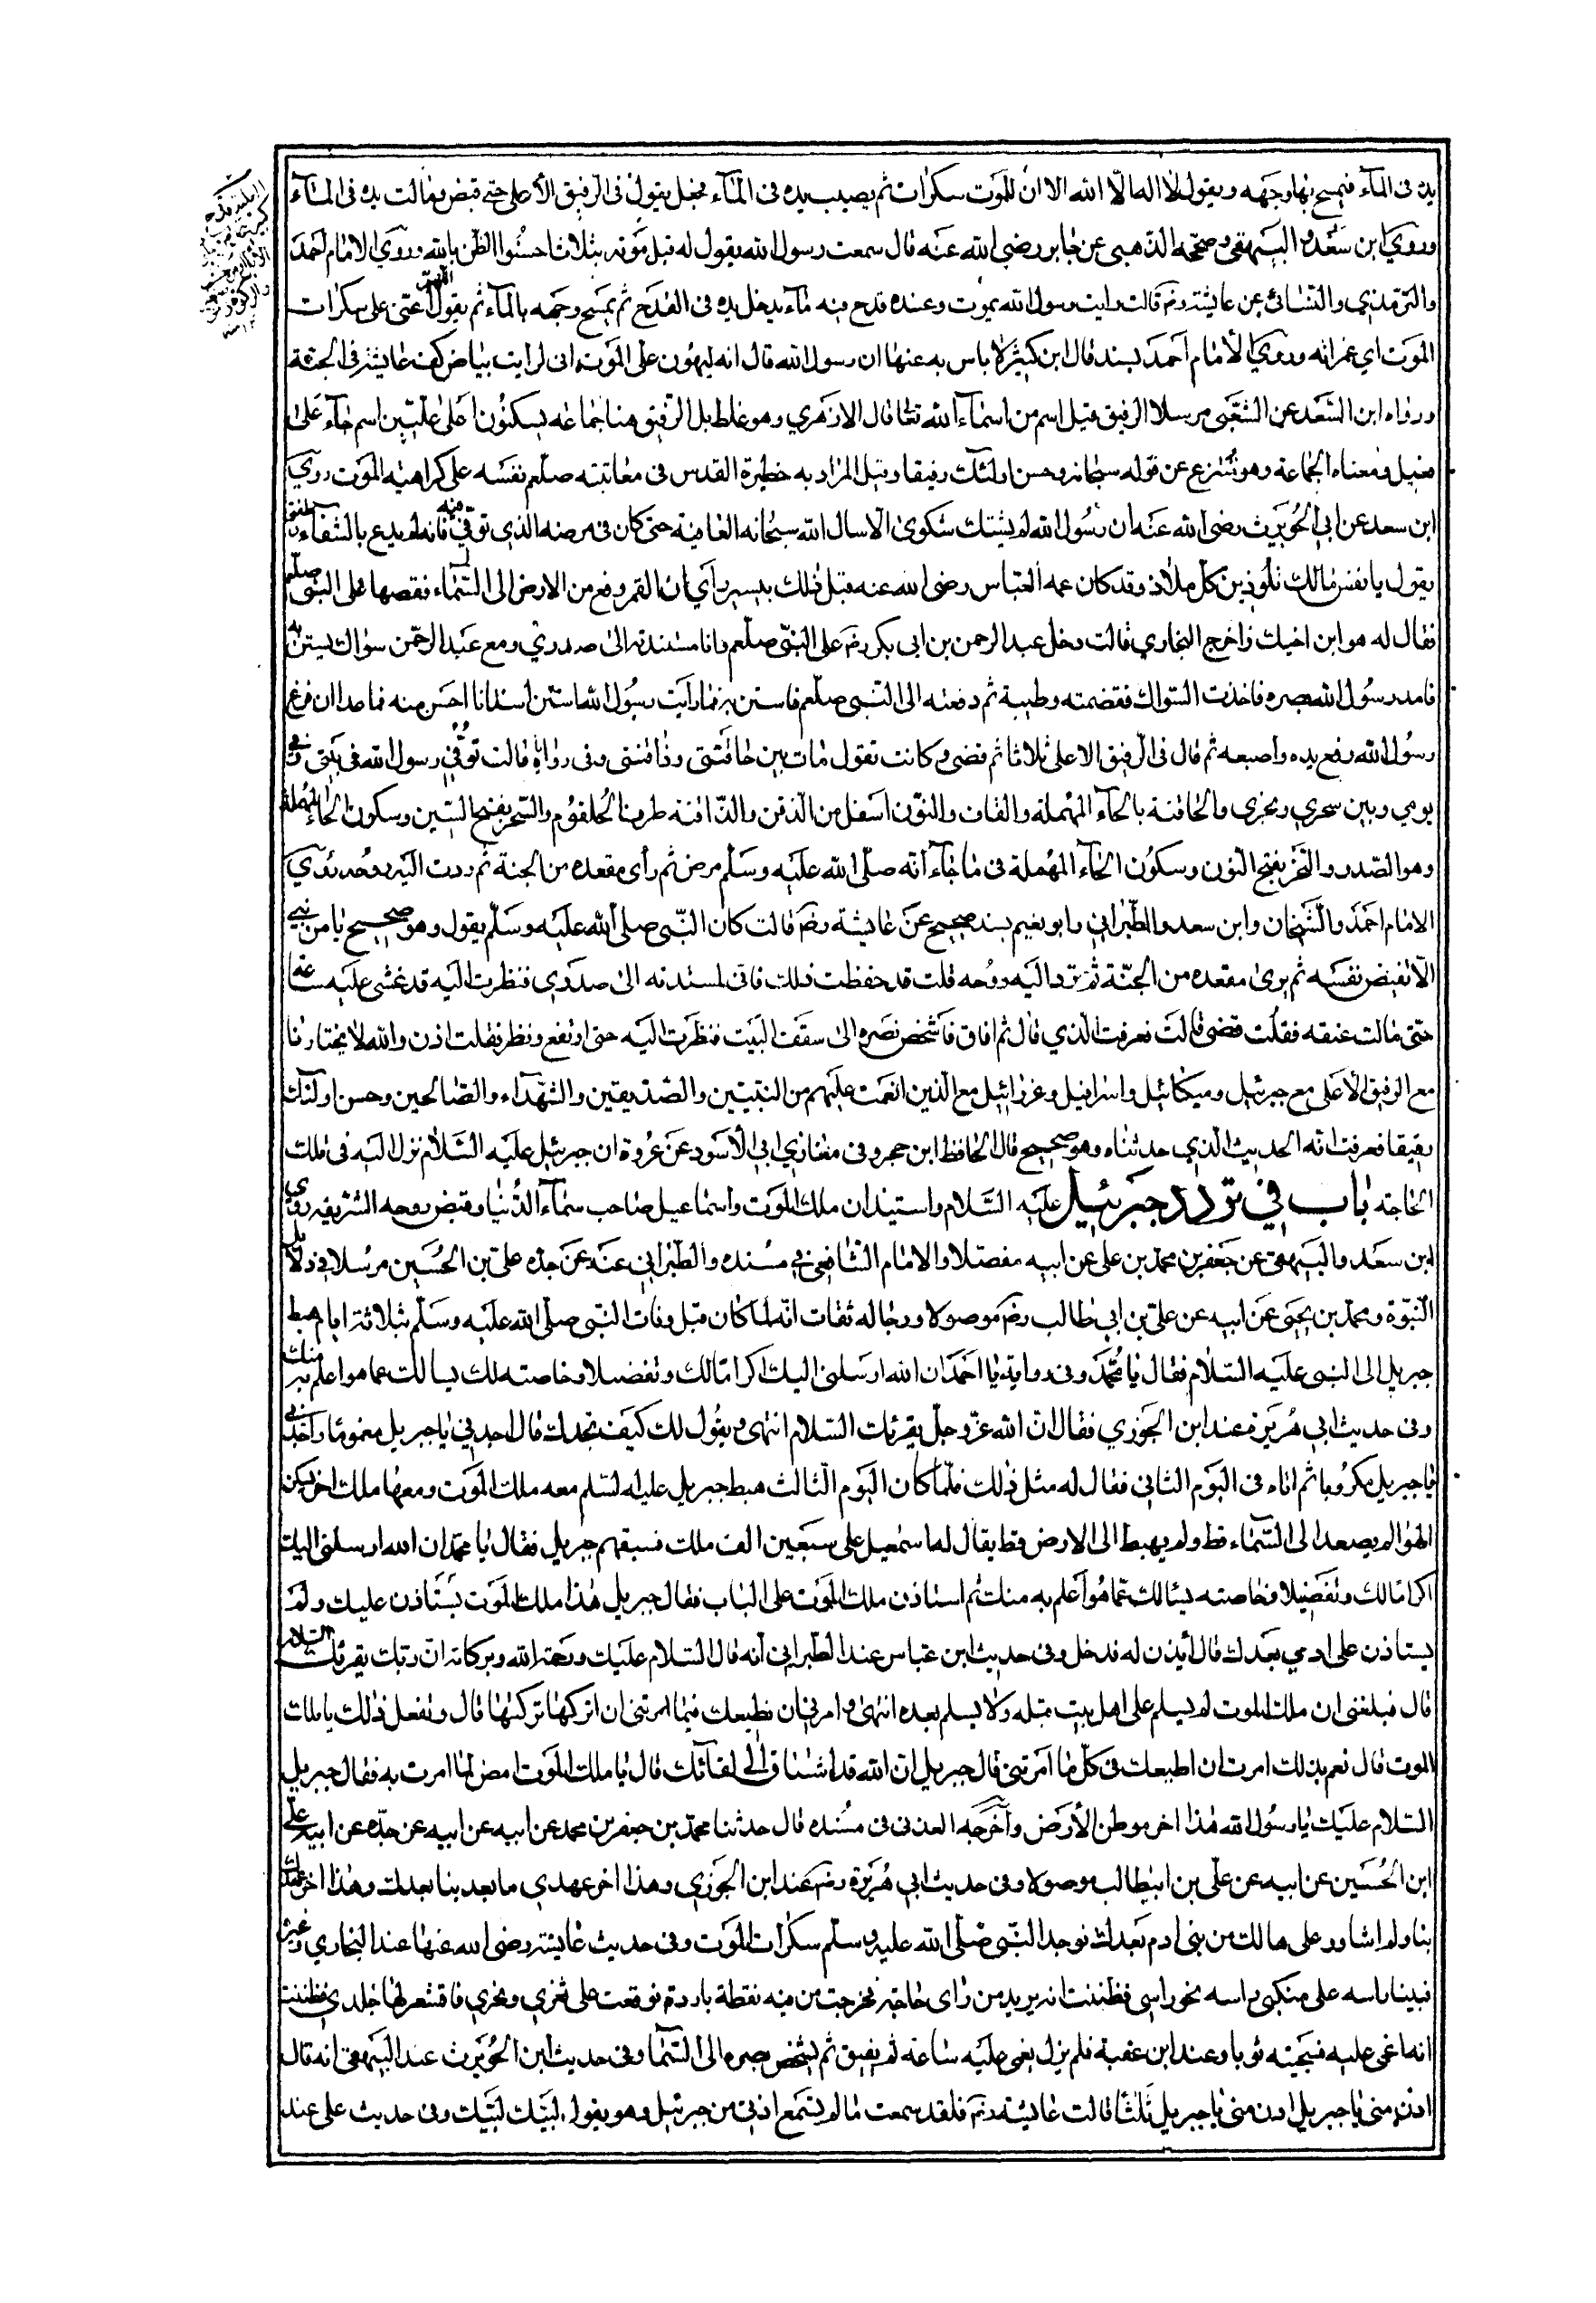 يده فى المآء فيمسح بها وجهه ويقول لا اله الّا الله الا انّ للموت سكرات ثم يصيب يده فى المآء فجعل يقول فى الرفيق الأعلى حتى قبض ومالت يده فى المآء
وروى ابن سعد والبيهقى وصحّحه الذهبى عن جابر رضى الله عنه قال سمعت رسول الله يقول له قبل موته بثلاث احسنوا الظن بالله وروى الامام احمد
والترمذى والنسائى عن عايشة رضه قالت رايت رسول الله يموت وعنده قدح فيه مآء يدخل يده فى القدح ثم يمسح وجهه بالمآء ثم يقول اللهم اعنى على سكرات
الموت اي غمراته وروى الأمام احمد بسند قال ابن كثير لا باس به عنها ان رسول الله قال انه ليهون على الموت انى لرايت بياض كف عايشة فى الجنة
ورواه ابن السعد عن الشعبى مرسلا الرفيق قيل اسم من اسمآء الله تعا قال الازهري وهو غلط بل الرفيق هنا جماعه يسكنون اعلى علّيين اسم جآء على
فعيل ومعناه الجماعة وهو منتزع عن قوله سبحانه وحسن اولئك رفيقا وقيل المراد به حظيرة القدس فى معاتبته صلعم نفسه على كراهية الموت روي
ابن سعد عن ابى الحويرث رضى الله عنه ان رسول الله لم يشتك شكوى الا سال الله سبحانه العافية حتى كان فى مرضه الذي توفى فيه فانه لم يدع بالشفاء وطفق
يقول يا نفس مالك تلوذين كل ملاذ وقد كان عمه العباس رضى الله عنه قبل ذلك بيسير رأي ان القمر رفع من الارض الى السّماء فقصها على النبى صلعم
فقال له هو ابن اخيك واخرج البخاري قالت دخل عبد الرحمن بن ابى بكر رضه على النبى صلعم وانا مسندته الى صدري ومع عبد الرحمن سواك يستن به
فامد رسول الله بصره فاخذت السواك فقضمته وطيبة ثم دفعته الى النبى صلعم فاستن به فما رايت رسول الله استن استنانا احسن منه فما عدا ان فرغ
رسول الله رفع يده واصبعه ثم قال فى الرفيق الاعلى ثلاثا ثم قضى وكانت تقول مات بين حاقنتى وذاقنتى وفى رواية قالت توفى رسول الله فى بيتى وفى
يومي وبين سحري ونحري والحاقنة بالحآء المهملة والقاف والنون اسفل من الذقن والذاقنة طرف الحلقوم والسّحر بفتح السّين وسكون الحاء المهملة
وهو الصّدر والنّحر بفتح النّون وسكون الحآء المهملة فى ما جآء انّه صلّى الله عليه وسلّم مرض ثم رأى مقعده من الجنة ثم ردت اليه روحه روي
الامام احمد والشيخان وابن سعد والطبرانى وابو نعيم بسند صحيح عن عايشة رضه قالت كان النّبى صلى الله عليه وسلّم يقول وهو صحيح ما من نبى
الّا تقبض نفسه ثم يرى مقعده من الجنّة ثم ترد اليه روحه قلت قد حفظت ذلك فانى لمسندته الى صدري فنظرت اليه قد غشى عليه ساعة
حتى مالت عنقه فقلت قضى قالت فعرفت الّذي قال ثم افاق فاشخص بصره الى سقف البيت فنظرت اليه حتى ارتفع ونظر فقلت اذن والله لا يختارنا
مع الرفيق الاعلى مع جبرئيل وميكائيل واسرافيل وعزرائيل مع الّذين انعمت عليهم من النّبيّين والصّديقين والشّهداء والصّالحين وحسن اولئك
رفيقا فعرفت انه الحديث الّذي حدثناه وهو صحيح قال الحافظ ابن حجر وفى مغازي ابى الاسود عن عروة ان جبرئيل عليه السّلام نزل اليه فى تلك
الحاجته باب في تردد جبرئيل عليه السّلام واستيذان ملك الموت واسماعيل صاحب سمآء الدّنيا وقبض روحه الشريفه روي
ابن سعد والبيهقى عن جعفر بن محمد بن على عن ابيه مفصلا والامام الشّافعى فى مسنده والطبرانى عنه عن جدّه على بن الحسين مرسلا فى دلائل
النّبوّة ومحمد بن يحيى عن ابيه عن على بن ابى طالب رضه موصولا ورجاله ثقات انّه لما كان قبل وفات النّبى صلّى الله عليه وسلّم بثلاثة ايام هبط
جبريل الى النبى عليه السّلام فقال يا محمّد وفى رواية يا احمد ان الله ارسلنى اليك اكراما لك وتفضيلا وخاصته لك يسالك عما هو اعلم به منك
وفى حديث ابى هريرة عند ابن الجوزي فقال انّ الله عزّ وجلّ يقرئك السّلام انتهى ويقول لك كيف تجدك قال اجدنى يا جبريل مغموما واجدنى
يا جبريل مكروبا ثم اتاه فى اليوم الثانى فقال له مثل ذلك فلمّا كان اليوم الثالث هبط جبريل عليه لسلم معه ملك الموت ومعها ملك اخر يسكن
الهوا لم يصعد الى السّماء قط ولم يهبط الى الارض قط يقال له اسمعيل على سبعين الف ملك فسبقهم جبريل فقال يا محمّد ان الله ارسلنى اليك
اكراما لك وتفضيلا وخاصته يسالك عمّا هو اعلم به منك ثم استاذن ملك الموت على الباب فقال جبريل هذا ملك الموت يستاذن عليك ولم
يستاذن على ادمي بعدك قال أيذن له فدخل وفى حديث ابن عباس عند الطّبرانى انه قال السّلام عليك ورحمة الله وبركاته انّ ربك يقرئك السّلام
قال فبلغنى ان ملك الموت لم يسلم على اهل بيت قبله ولا يسلم بعده انتهى وامرنى ان نطيعك فيما امرتنى ان اتركها تركتها قال وتفعل ذلك يا ملك
الموت قال نعم بذلك امرت ان اطيعك فى كلّ ما امرتنى قال جبريل ان الله قد اشتاق الى لقائك قال يا ملك الموت امض لما امرت به فقال جبريل
السّلام عليك يا رسول الله هذا اخر موطن الأرض واخرجه العدنى فى مسنده قال حدثنا محمّد بن جعفر بن محمد عن ابيه عن ابيه عن جدّه عن ابيه على
ابن الحسين عن ابيه عن علّى بن ابيطالب موصولا وفى حديث ابى هريرة رضه عند ابن الجوزي وهذا اخر عهدي ما بعد بنا بعدك وهذا اخر عهدك
بنا ولم اشاور على هالك من بنى ادم بعدك فوجد النّبى صلّى الله عليه وسلّم سكرات الموت وفى حديث عايشة رضى الله عنها عند البخاري وغيره
فبينا راسه على منكبى راسه نحو راسى فظننت انه يريد من راى حاجة فخرجت من فيه نقطة باردة فوقعت على ثغري ونحري فاقشعر لها جلدى فظننت
انه اغمى عليه فسجيته ثوبا وعند ابن عقبة فلم يزل يغمى عليه ساعة ثم يفيق ثم يشخص بصره الى السّما وفى حديث ابن الحويرث عند البيهقى انه قال
ادن منى يا جبريل ادن منى يا جبريل ثلثا قالت عايشة رضه فلقد سمعت ما لم يسمع اذنى من جبرئيل وهو يقول لبّيك لبّيك وفى حديث على عند